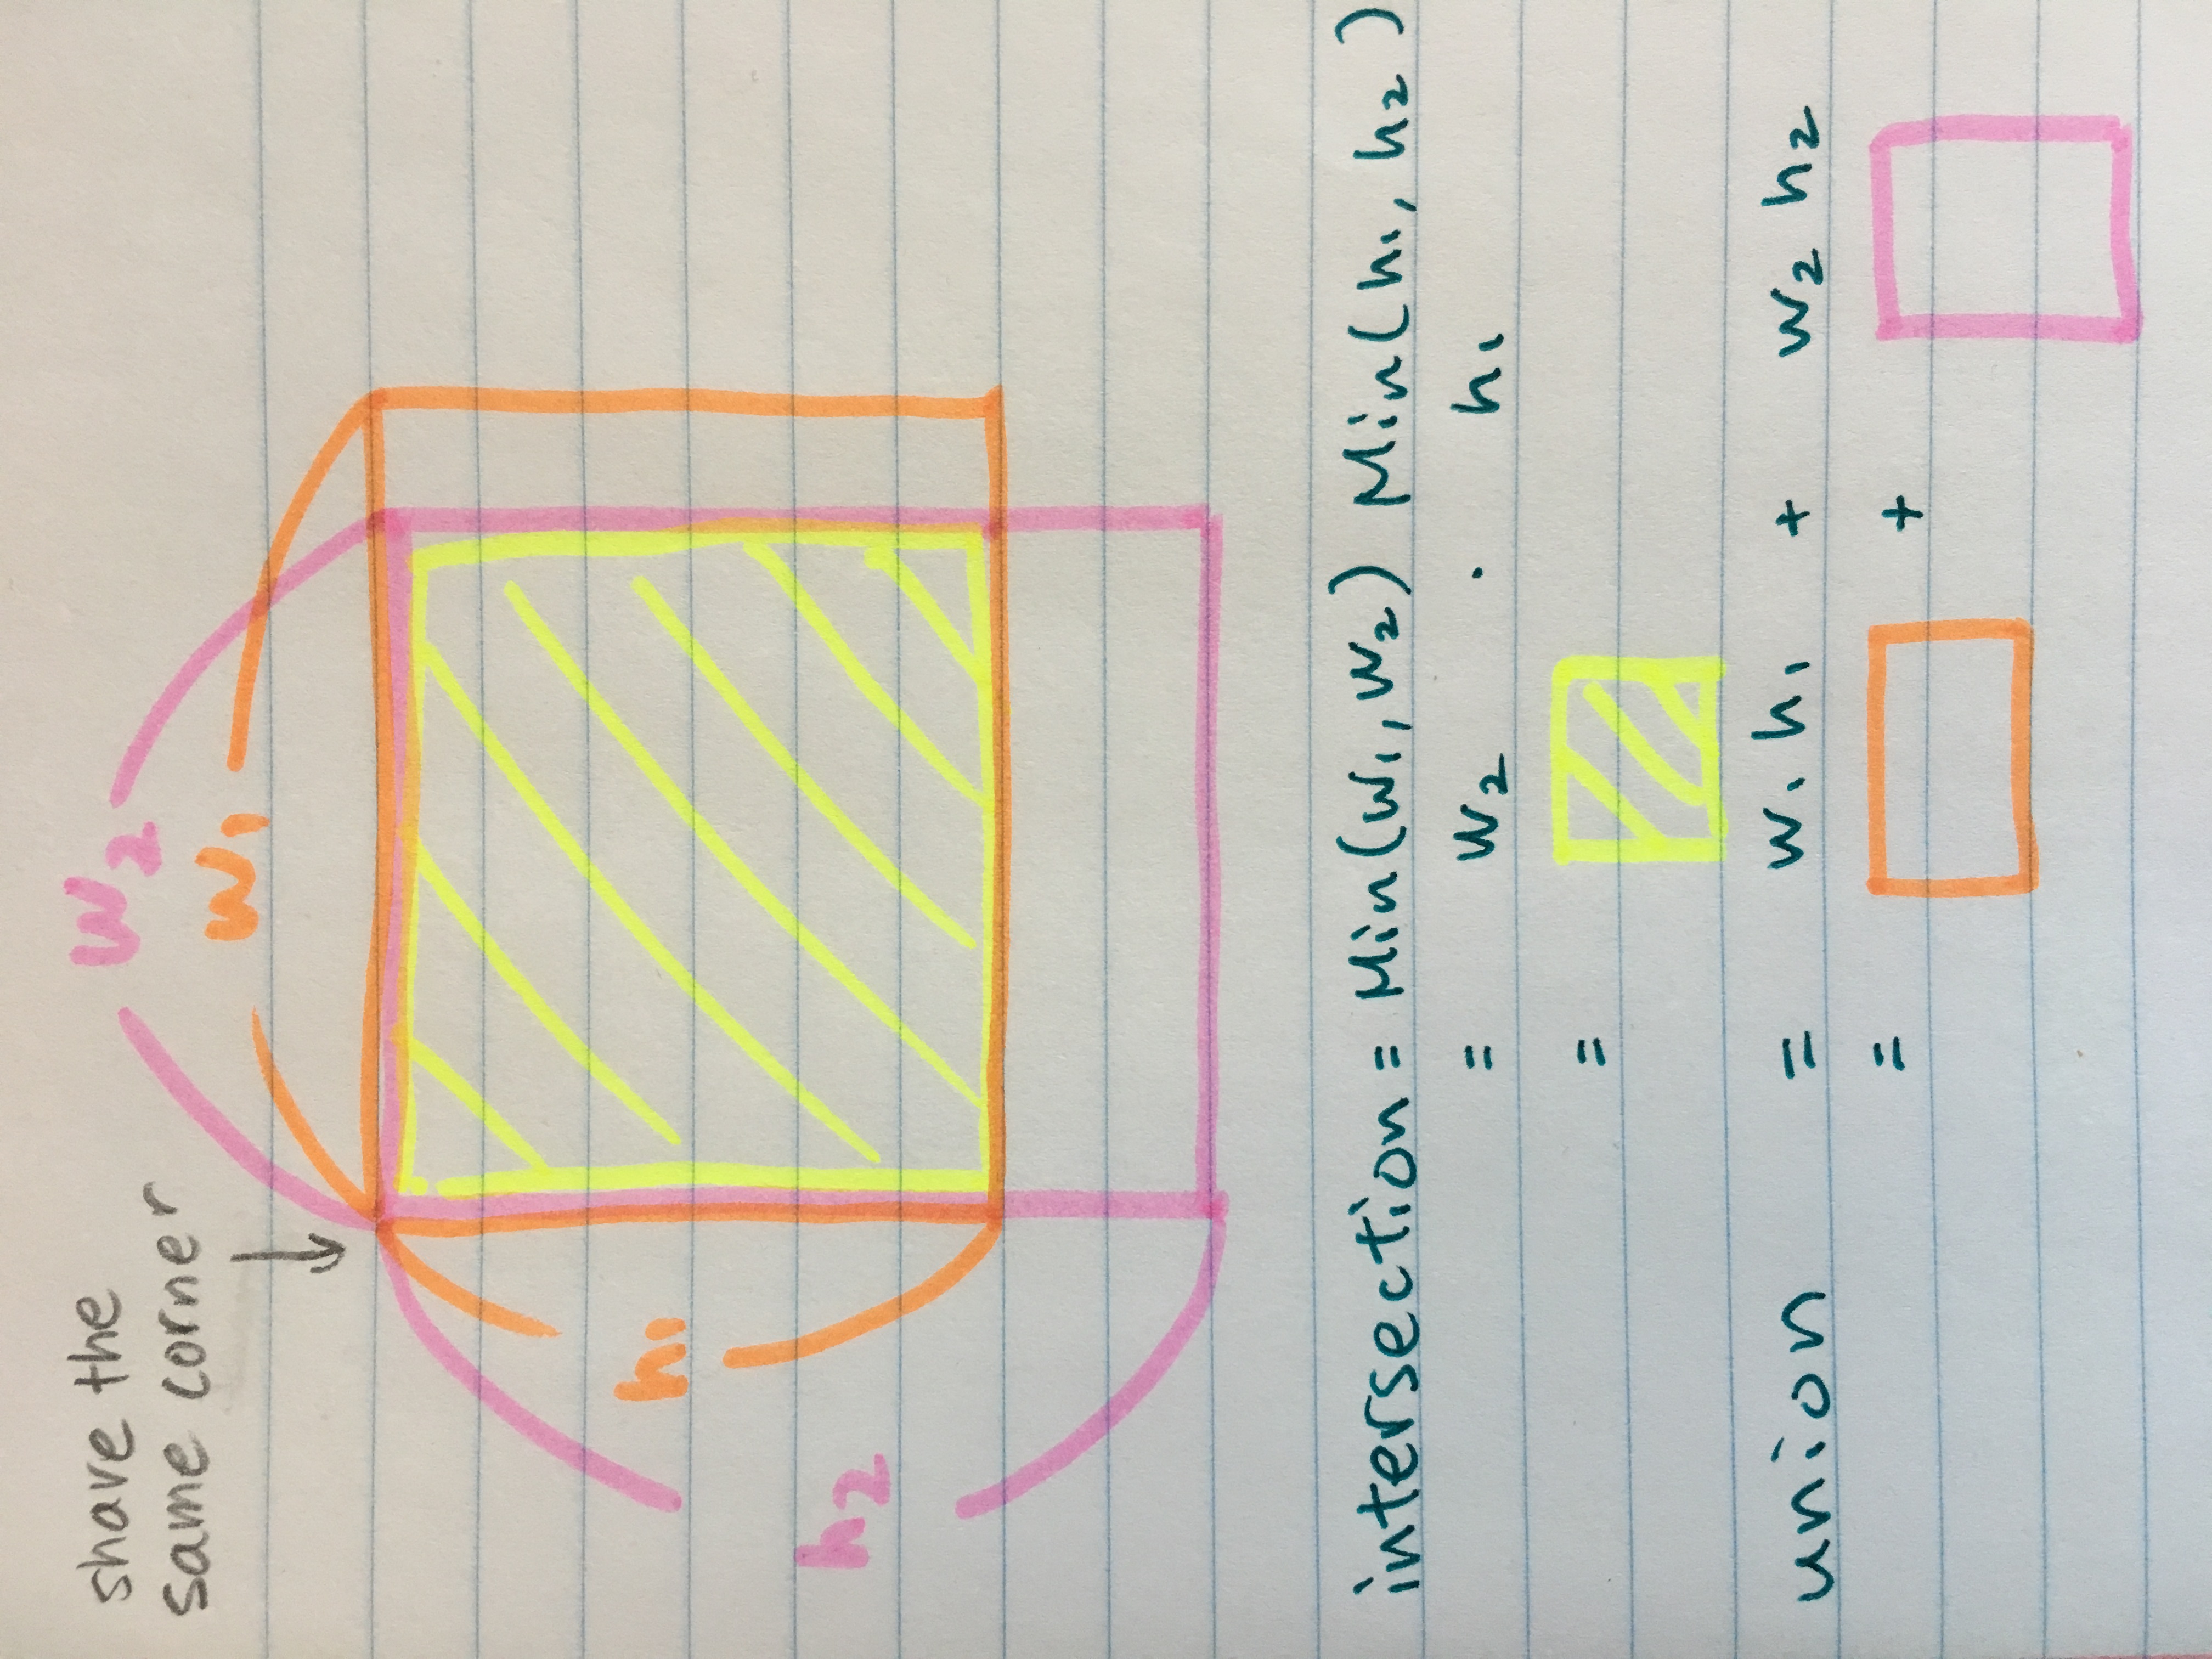 share the
same corner
W₂
W₁
h₁
h₂
intersection = Min(W₁, W₂) Min(h₁, h₂)
= W₂ · h₁
=
union = W₁ h₁ + W₂ h₂
= +